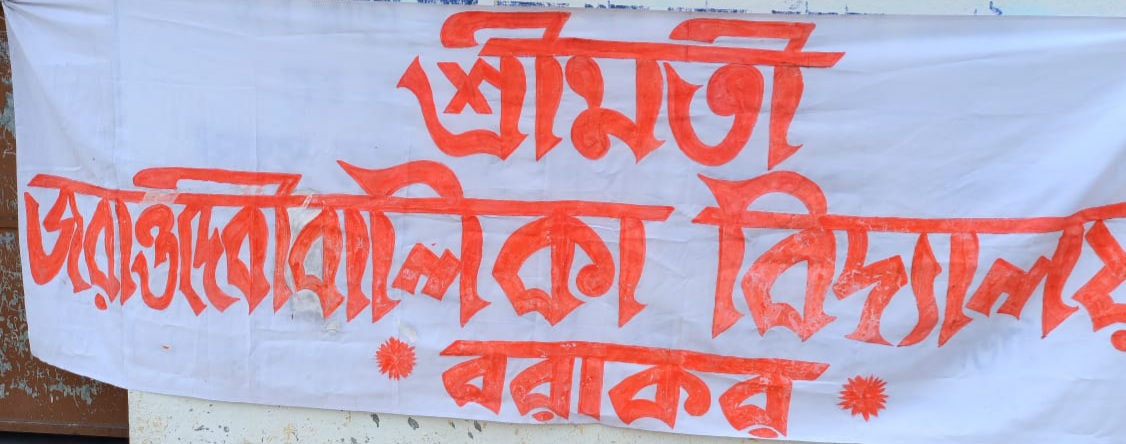 শ্রীমতী
জরাওদেবী বালিকা বিদ্যালয়
বরাকর